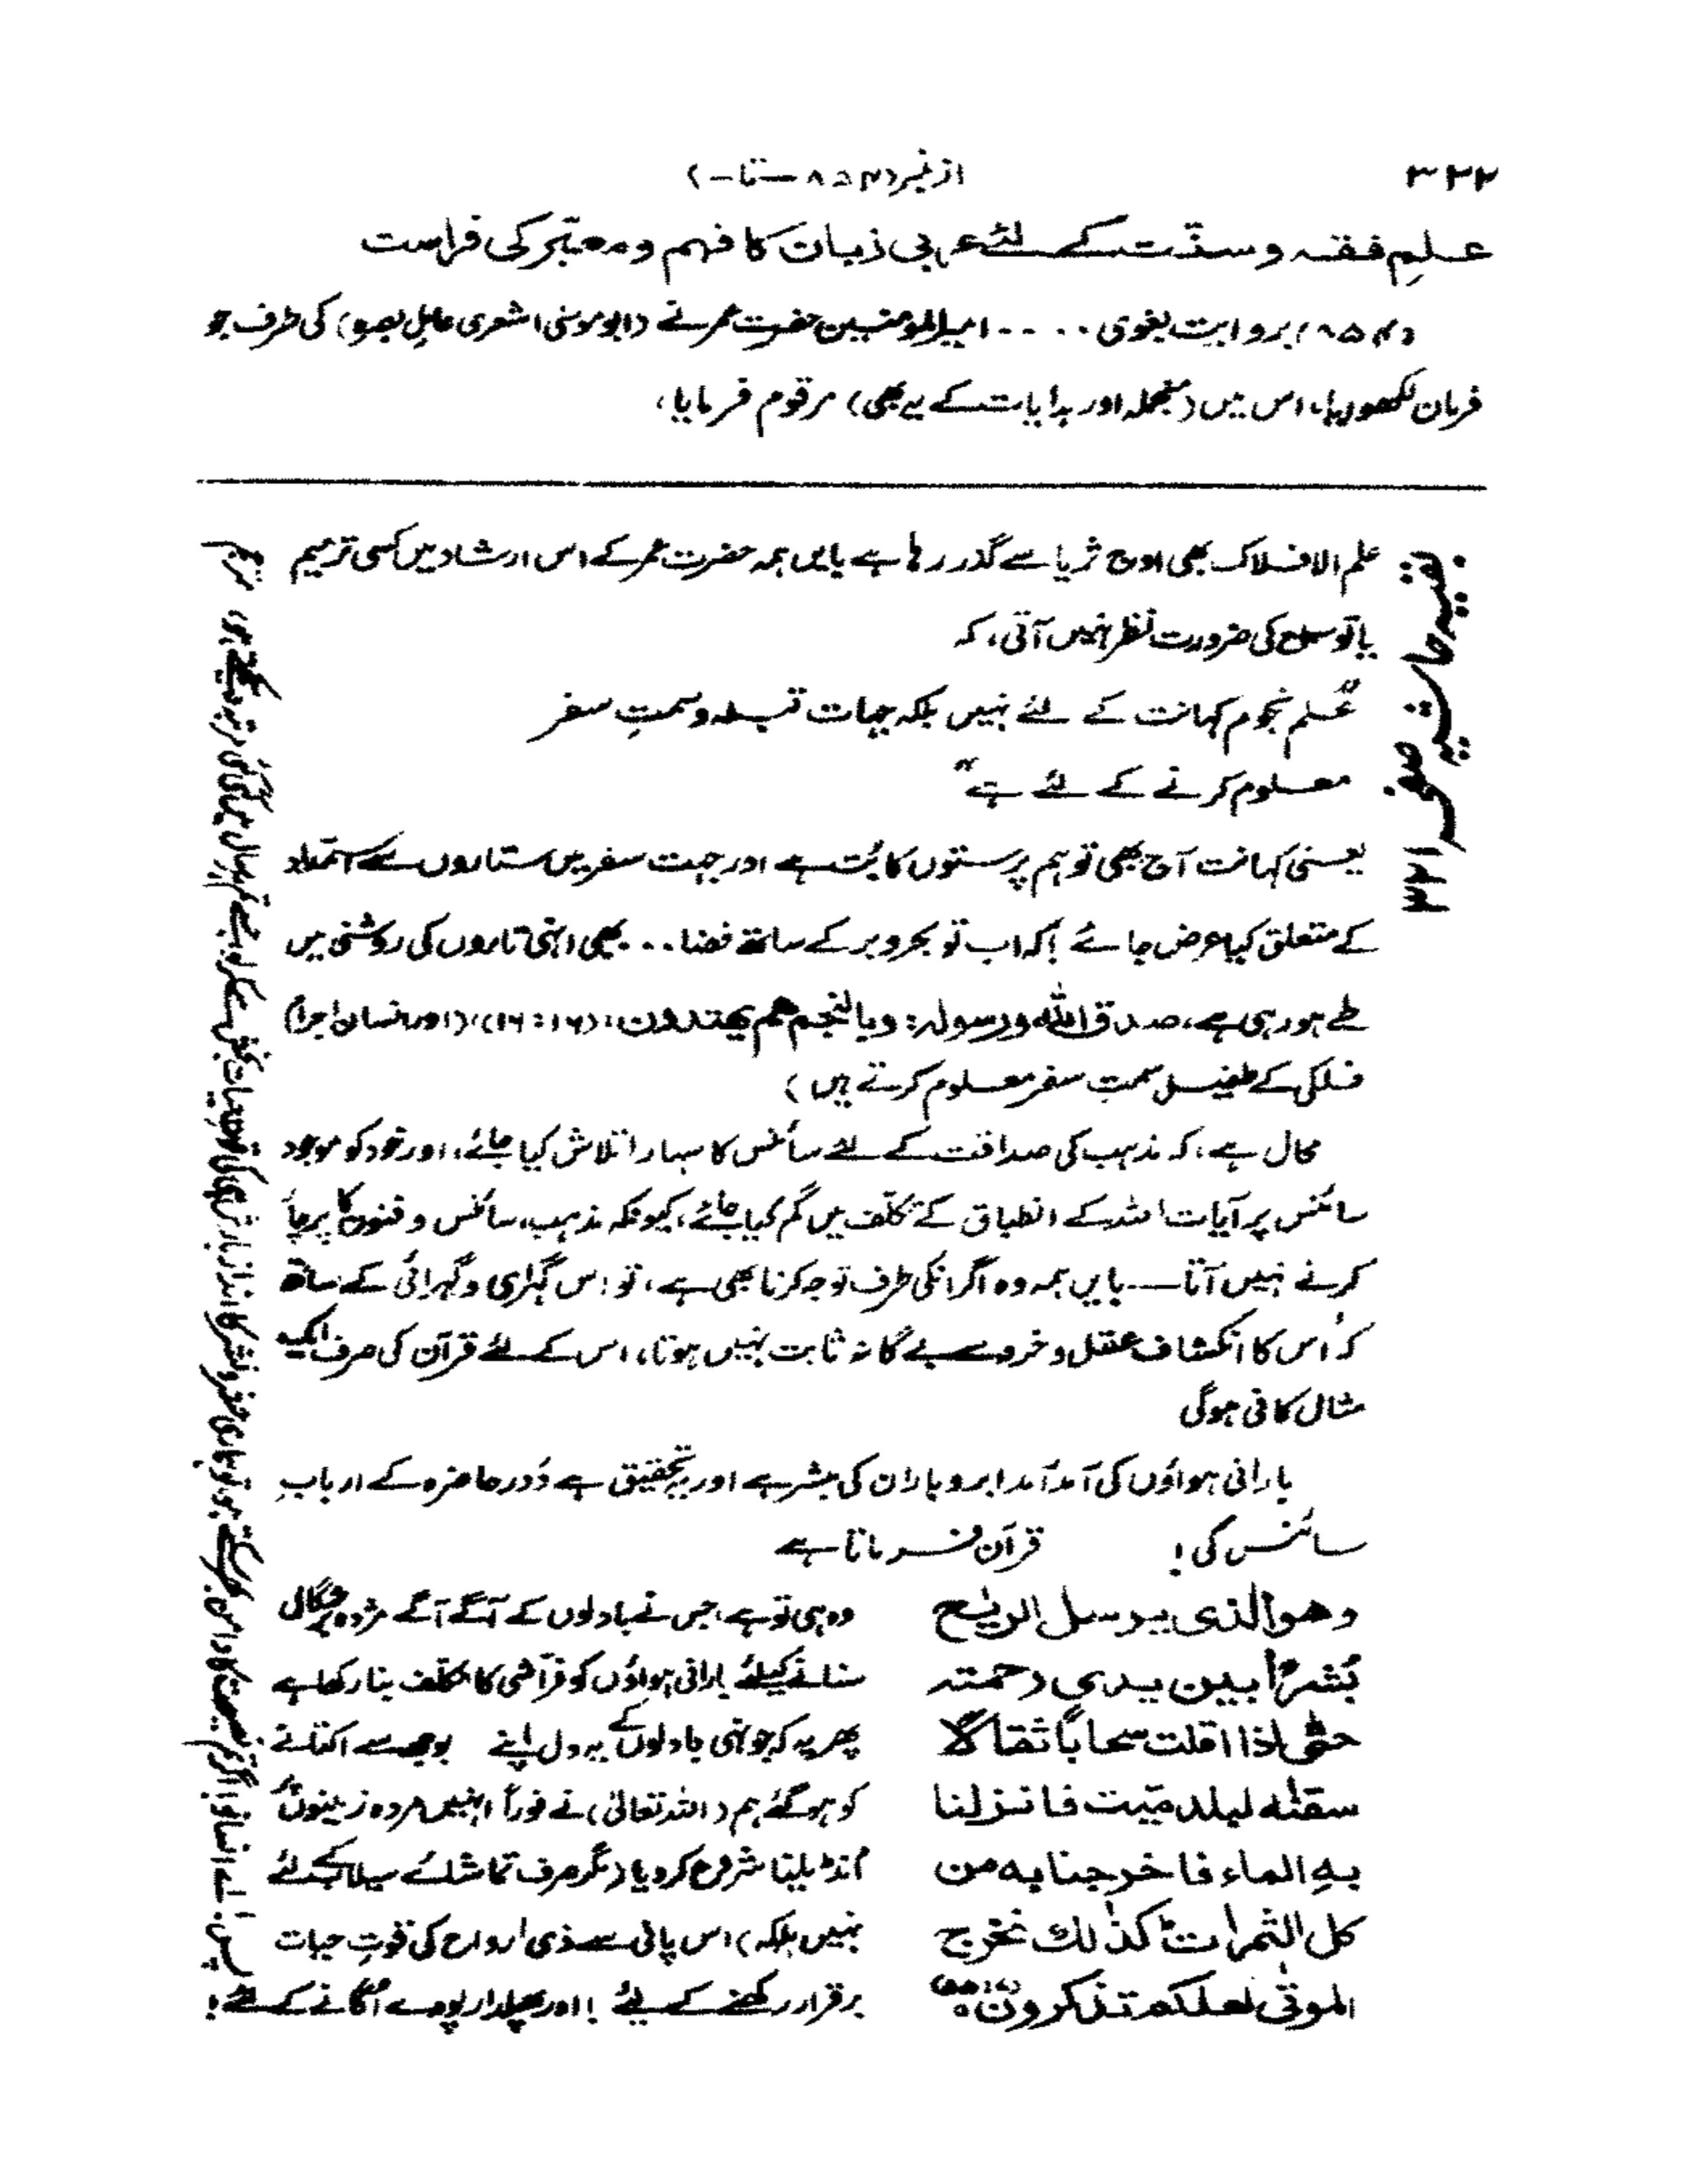 ۳۲۲
از نمبر (۸۵۴ — تا —)
علمِ فقہ و سنّت کے لئے عربی زبان کا فہم و معبّر کی فراست
(۸۵۴) بروایت بغوی ۔۔۔۔ امیر المومنین حضرت عمر نے (ابو موسیٰ اشعری عاملِ بصرہ) کی طرف جو
فرمان لکھوایا، اس میں (منجملہ اور ہدایات کے یہ بھی) مرقوم فرمایا،
بقیہ حاشیہ صفحہ ۳۲۱
علم الافلاک بھی اوج ثریا سے گذر رہا ہے بایں ہمہ حضرت عمر کے اس ارشاد میں کسی ترمیم
یا توسیع کی ضرورت نظر نہیں آتی، کہ
"علم نجوم کہانت کے لئے نہیں بلکہ جہات قبلہ و سمتِ سفر
معلوم کرنے کے لئے ہے"
یعنی کہانت آج بھی توہم پرستوں کا بُت ہے اور جہت سفر میں ستاروں سے استمداد
کے متعلق کیا عرض جائے! کہ اب تو بحر و بر کے ساتھ فضا ۔۔ بھی انہی تاروں کی روشنی میں
طے ہو رہی ہے، صدق اللہ ورسولہ: وبالنجم هم يهتدون: (۱۶:۱۶) (اور انسان اجرامِ
فلکی کے طفیل سمتِ سفر معلوم کرتے ہیں)
محال ہے، کہ مذہب کی صداقت کے لئے سائنس کا سہارا تلاش کیا جائے، اور خود کو موجود
سائنس پر آیات اللہ کے انطباق کے تکلّف میں گم کیا جائے، کیونکہ مذہب، سائنس و فنون کا پرچار
کرنے نہیں آتا — بایں ہمہ وہ اگر انکی طرف توجہ کرتا بھی ہے، تو اس گہرائی و گیرائی کے ساتھ
کہ اس کا انکشاف عقل و خرد سے بے گانہ ثابت نہیں ہوتا، اس کے لئے قرآن کی صرف ایک
مثال کافی ہوگی
بارانی ہواؤں کی آمد آمد ابر و باران کی مبشر ہے اور یہ تحقیق ہے دَور حاضرہ کے اربابِ
سائنس کی! قرآن فرماتا ہے
وهو الذى يرسل الريٰح وہ ہی تو ہے، جس نے بادلوں کے آگے آگے مژدہ
بُشرًا بين يدى رحمته سنانے کیلئے بارانی ہواؤں کو فرّاشی کا مکلّف بنا رکھا ہے
حتّٰى اذا اقلت سحابًا ثقالًا پھر یہ کہ جونہی بادلوں کے یہ دل اپنے بوجھ سے اکتانے
سقنٰه لبلد ميّت فانزلنا کو ہو گئے ہم (اللہ تعالیٰ) نے فوراً انہیں مردہ زمینوں پر
بهِ الماء فاخرجنا به من اُنڈیلنا شروع کر دیا (مگر صرف تماشائے سیلاب کے لئے
كل الثمرات ط كذٰلك نخرج نہیں بلکہ) اس پانی سے ذی ارواح کی قوتِ حیات
الموتٰى لعلكم تذكرون۔ برقرار رکھنے کے لئے! اور پھلدار پودے اُگانے کے لئے!